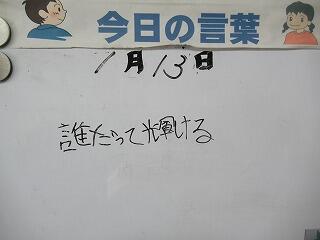 今日の言葉
1月13日
誰だって輝ける